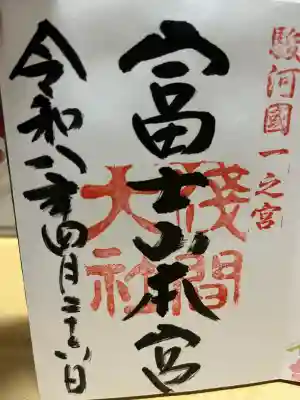 駿河國一之宮
富士山本宮
淺間大社
令和八年四月二十六日